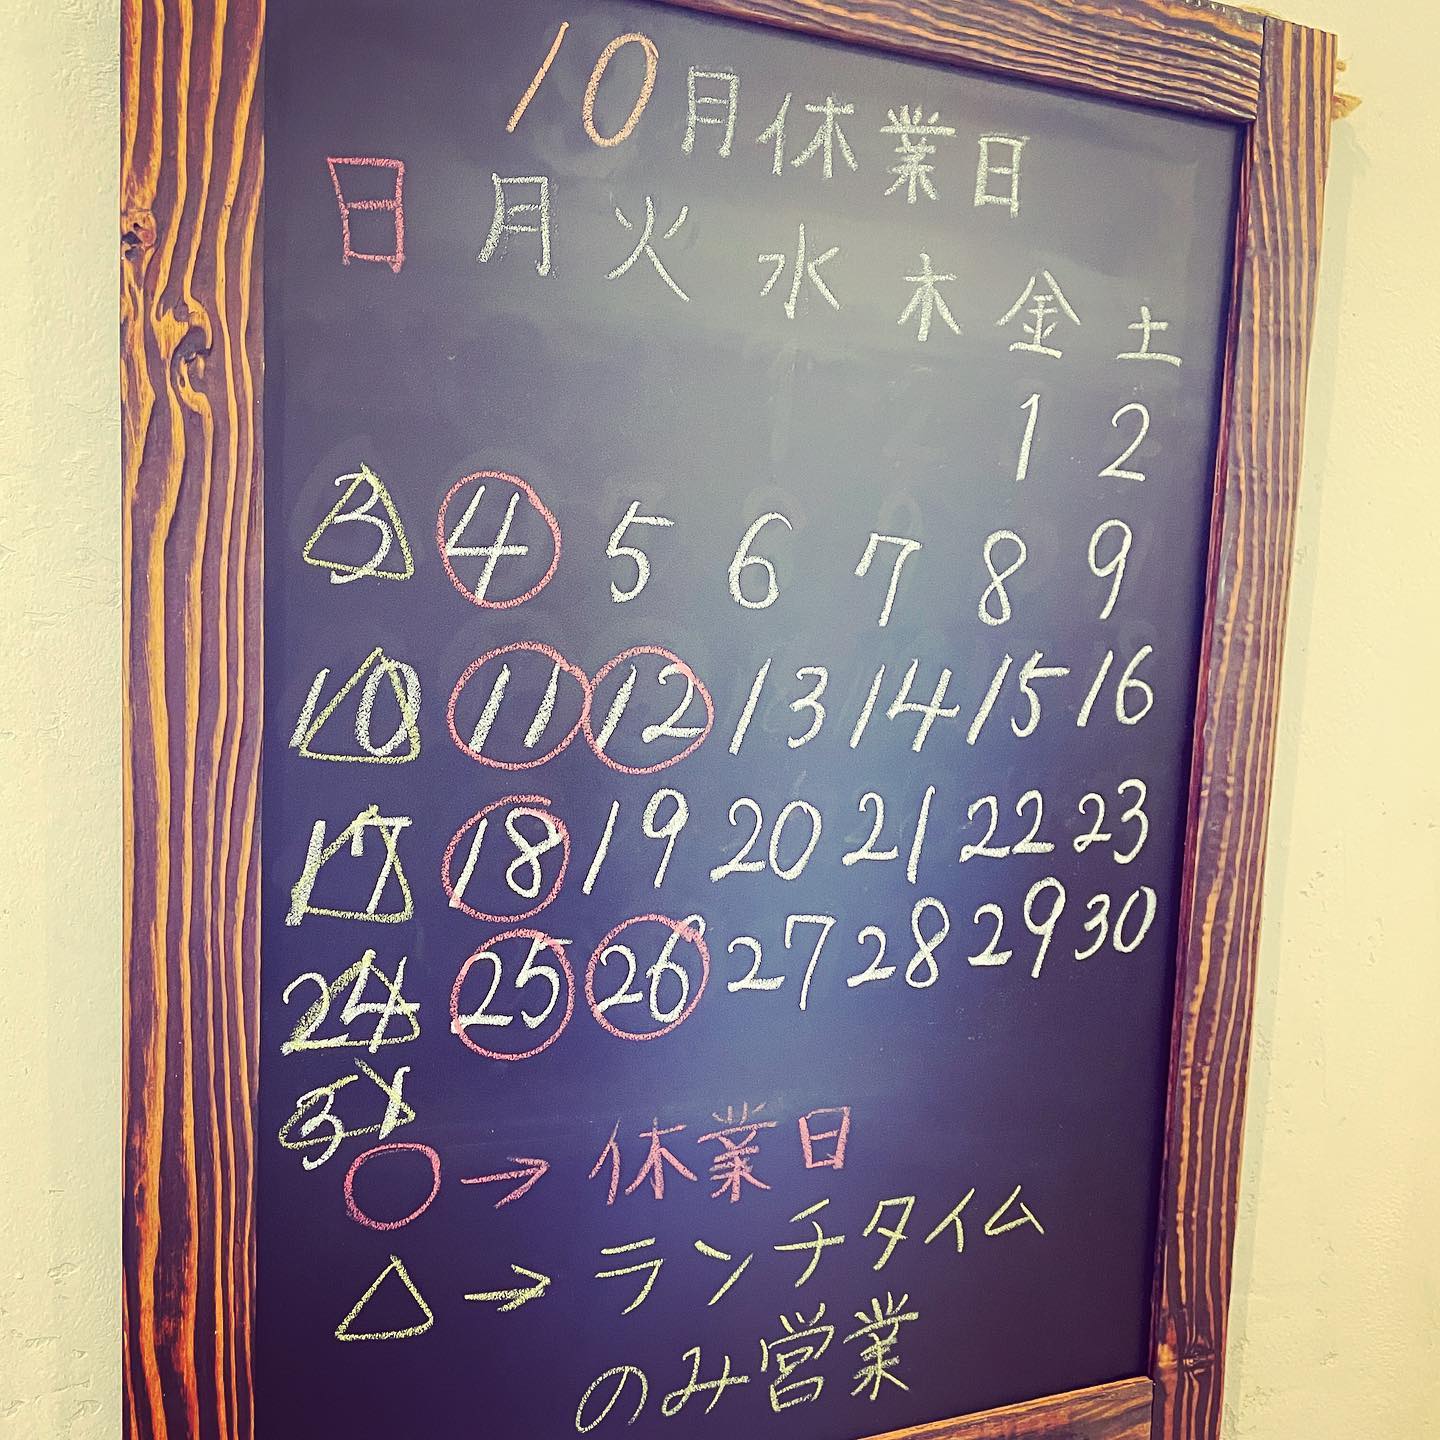 10月休業日
日 月 火 水 木 金 土
1 2
3 4 5 6 7 8 9
10 11 12 13 14 15 16
17 18 19 20 21 22 23
24 25 26 27 28 29 30
31
○→休業日
△→ランチタイム
のみ営業